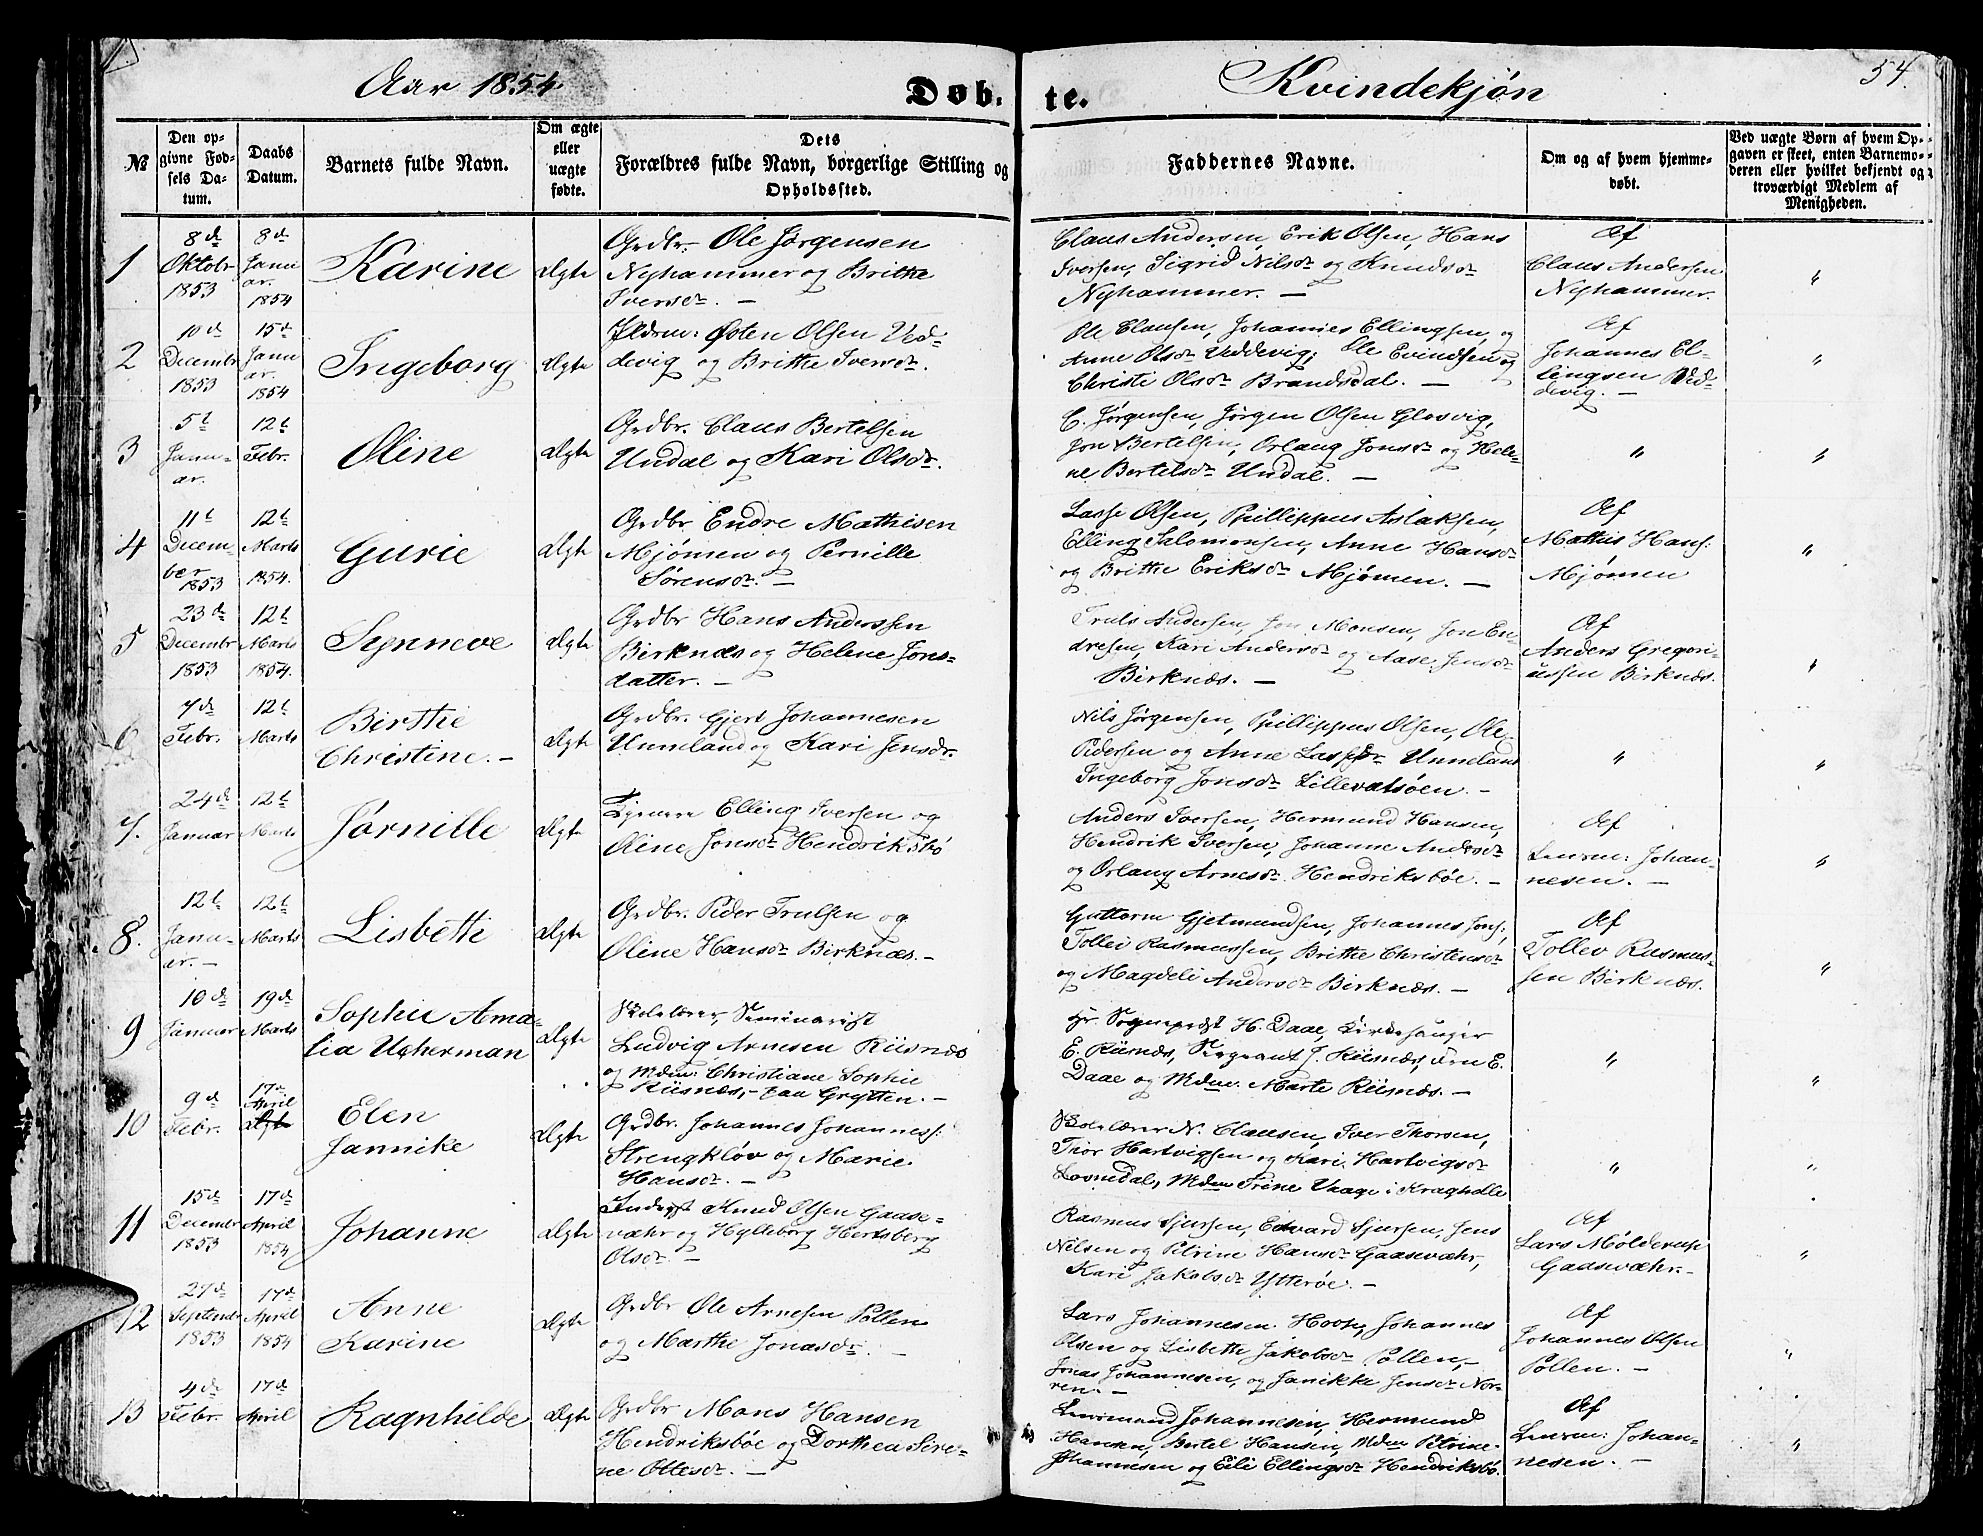 Aar 1854
Døb-
te.
Kvindekjøn
54.
№
Den op-
givne Fød-
sels Da-
tum.
Daabs
Datum.
Barnets fulde Navn.
Om ægte
eller
uægte
fødte.
Dets
Forældres fulde Navn, borgerlige Stilling og
Opholdssted.
Faddernes Navne.
Om og af hvem hjemme-
døbt.
Ved uægte Børn af hvem Op-
gaven er skeet, enten Barnemo-
deren eller hvilket bekjendt og
troværdigt Medlem af
Menigheden.
1
8de
Oktobr
1853
8de
Janu
ar.
1854
Karine
Ægte
Grdbr. Ole Jørgensen
Nyhammer og Brithe
Iversdr. —
Claus Andersen, Erik Olsen, Hans
Iversen, Sigrid Nilsdr og Knudsdr
Nyhammer. —
Af
Claus Andersen
Nyhammer.
"
2
10de
Decembr
1853
15de
Janu
ar.
1854
Ingeborg
Ægte
Østen Olsen Ved-
devig og Brithe Iversdr.
Ole Clausen, Johannes Ellingsen, og
Anne Olsdr Veddevig; Ole Evindsen og
Christi Olsdr Brandsdal. —
Af
Johannes El-
lingsen Ved-
devig. —
"
3
5te
Janu-
ar.
12te
Febr.
Oline
Ægte
Grdbr. Claus Bertelsen
Undal og Kari Olsdr.
C. Jørgensen, Jørgen Olsen Glosvig,
Jon Bertelsen, Orlaug Jonsdr og Hele-
ne Bertelsdr Undal. —
"
"
4
11te
Decem-
ber
1853
12te
Marts
1854.
Gurie
Ægte
Grdbr Endre Mathisen
Mjømen og Pernille
Sørensdr. —
Lasse Olsen, Phillippus Aslaksen,
Elling Salomonsen, Anne Hansdr
og Brithe Eriksdr Mjømen. —
Af
Mathis Hans:
Mjømen
"
5
23de
Decembr
1853
12te
Marts
1854.
Synneve
Ægte
Grdbr Hans Anderssen
Birknæs og Helene Jons-
datter. —
Truls Andersen, Jon Monsen, Jon En-
dresen, Kari Andersdr og Aase Jensdr
Birknæs. —
Af
Anders Gregori-
ussen Birknæs.
"
6
7de
Febr.
12te
Marts
Birthe
Christine. —
Ægte
Grdbr. Gjert Johannesen
Unneland og Kari Jensdr.
Nils Jørgensen, Phillippus Olsen, Ole
Pedersen og Anne Lassedr Unneland
Ingeborg Jonsdr Lillevatsøen. —
"
"
7.
24de
Januar
12te
Marts
Jørnille
Ægte
Elling Iversen og
Oline Jonsdr Hendriksbø
Anders Iversen, Hermund Hansen,
Hendrik Iversen, Johanne Andersdr
og Orlaug Arnesdr Hendriksbøe. —
Af
Lensm: Johan-
nesen. —
"
8.
12te
Janu-
ar. —
12te
Marts
Lisbeth
Ægte
Grdbr. Peder Trulsen og
Oline Hansdr Birknæs. —
Guttorm Gjetmundsen, Johannes Jons:
Tollev Rasmussen, Brithe Christensdr
og Magdeli Andersdr Birknæs. —
Af
Tollev Rasmus-
sen Birknæs.
"
9
10de
Januar
19de
Marts
Sophie Ama-
lia Ucherman
Ægte
Skolelærer, Seminarist
Ludvig Arnesen Riisnæs
og Mdm: Christiane Sophie
Riisnæs, — paa Grytten. —
Hr. Sogneprst H. Daae, Kirkesanger
E. Riisnæs, Sergeant J. Riisnæs, Frn E.
Daae og Mdm. Marte Riisnæs. —
"
"
10
9de
Febr.
17de
April
Elen
Jannike
Ægte
Grdbr. Johannes Johanness:
Strengkløv og Marie
Hansdr. —
Skolelærer N. Clausen, Iver Thorsen,
Thor Hartvigsen og Kari Hartvigsdr
Lovnedal, Mdm Trine Vaage i Kraghelle
"
"
11
15de
Decembr
1853
17de
April
1854
Johanne
Ægte
Inderst Knud Olsen Gaase-
væhr og Hylleborg Hertsberg
Olsdr. —
Rasmus Sjursen, Edvard Sjursen, Jens
Nilsen og Petrine Hansdr Gaasevæhr,
Kari Jakobsdr Ytterøe. —
Af
Lars Mølderup
Gaasevæhr. —
"
12
27de
Septembr
1853
17de
April
1854
Anne
Karine
Ægte
Grdbr Ole Arnesen Pollen
og Marthe Jonasdr. —
Lars Johannesen Hoope, Johannes
Olsen og Lisbeth Jakobsdr Pollen, —
Jonas Johannesen, og Janikke Jensdr Nor-
ren. —
Af
Johannes Olsen
Pollen. —
"
13
4de
Febr.
17de
April
Ragnhilde
Ægte
Grdbr Mons Hansen
Hendriksbøe og Dorthea Sire-
ne Ottesdr. —
Lensmand Johannesen, Hermund
Hansen, Bertel Hansen, Mdm Petrine
Johannesen og Eili Ellingsdr Hendriksbø.
Af
Lensm: Johan-
nesen. —
"